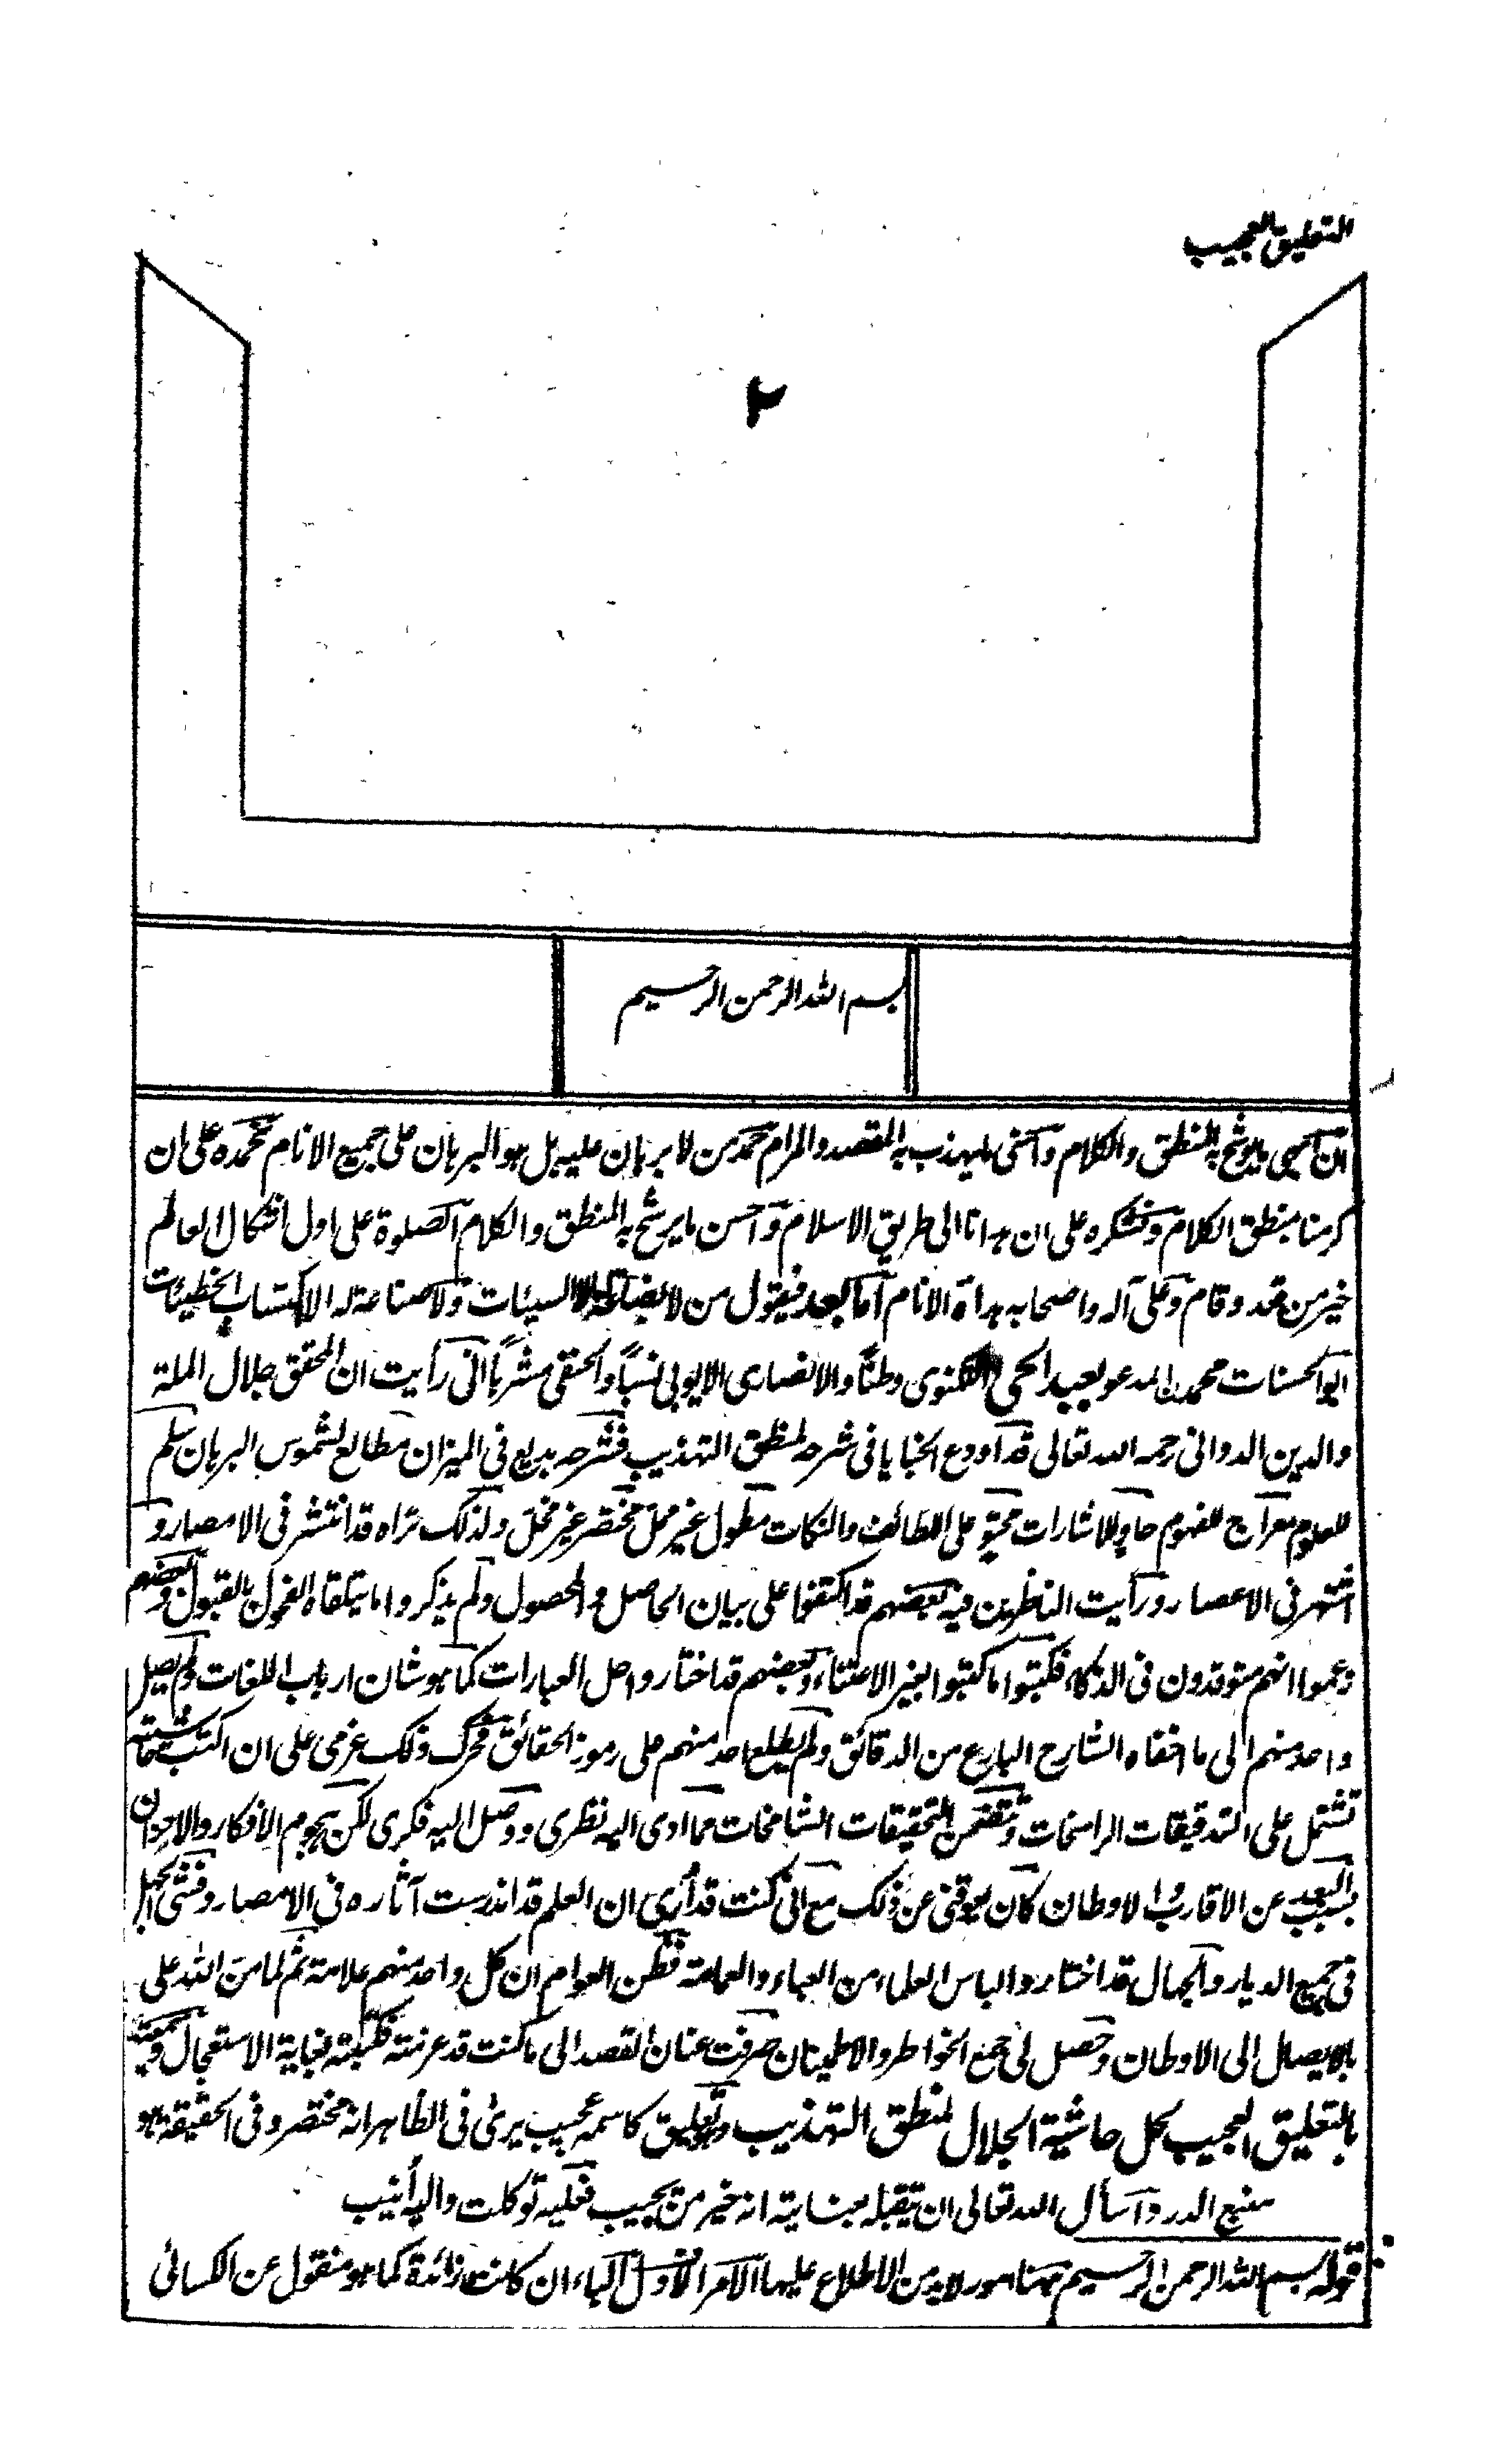 التعليق العجيب
٢
بسم الله الرحمن الرحيم
ان ما يوشح به المنطق والكلام و ما يهذب به المقصد والمرام حمد من لا برهان عليه بل هو البرهان على جميع الانام نحمده على ان
كرمنا بمنطق الكلام ونشكره على ان هدانا الى طريق الاسلام وآحسن ما يرشح به المنطق والكلام الصلوة على اول اشكال العالم
خير من قعد وقام وعلى آله واصحابه هداة الانام آما بعد فيقول من لا بضاعة له الا السيئات ولا صناعة له الا اكتساب الخطيئات
ابو الحسنات محمد المدعو بعبد الحى اللكنوى وطنًا والانصارى الايوبى نسبًا والحنفى مشربًا انى رأيت ان المحقق جلال الملة
والدين الدوانى رحمه الله تعالى قد اودع الخبايا فى شرحه لمنطق التهذيب فشرحه بديع فى الميزان مطالع لشموس البرهان سلم
للعلوم معراج للفهوم حاوٍ للاشارات محتوٍ على اللطائف والنكات مطول غير ممل مختصر غير مخل ولذلك تراه قد انتشر فى الامصار و
اشتهر فى الاعصار ورأيت الناظرين فيه بعضهم قد اكتفوا على بيان الحاصل والمحصول ولم يذكروا ما يتلقاه الفحول بالقبول وبعضهم
زعموا انهم متوقدون فى الذكاء فكتبوا ما كتبوا بغير الاعتناء وبعضهم قد اختاروا حل العبارات كما هو شان ارباب اللغات ولم يصل
واحد منهم الى ما اخفاه الشارح البارع من الدقائق ولم يطلع احد منهم على رموز الحقائق فحرك ذلك عزمى على ان اكتب حاشية
تشتمل على التدقيقات الراسخات وتتضمن التحقيقات الشامخات مما ادى اليه نظرى ووصل اليه فكرى لكن هجوم الافكار والاحزان
بسبب البعد عن الاقارب والاوطان كان يعوقنى عن ذلك مع انى كنت قد أرى ان العلم قد اندرست آثاره فى الامصار وفشى الجهل
فى جميع الديار والجهال قد اختاروا لباس العلماء من العباء والعمامة فظن العوام ان كل واحد منهم علامة ثم لما من الله على
بالايصال الى الاوطان وحصل لى جمع الخواطر والاطمينان صرفت عنان القصد الى ما كنت قد عزمته فكتبته بغاية الاستعجال وسميته
بالتعليق العجيب لحل حاشية الجلال لمنطق التهذيب وهو تعليق كاسمه عجيب يرى فى الظاهر انه مختصر وفى الحقيقة هو
منبع الدرر وآسأل الله تعالى ان يتقبله بعنايته انه خير من يجيب فعليه توكلت واليه أنيب
قوله بسم الله الرحمن الرحيم ههنا امور لا بد من الاطلاع عليها الامر الاول الباء ان كانت زائدة كما هو منقول عن الكسائى